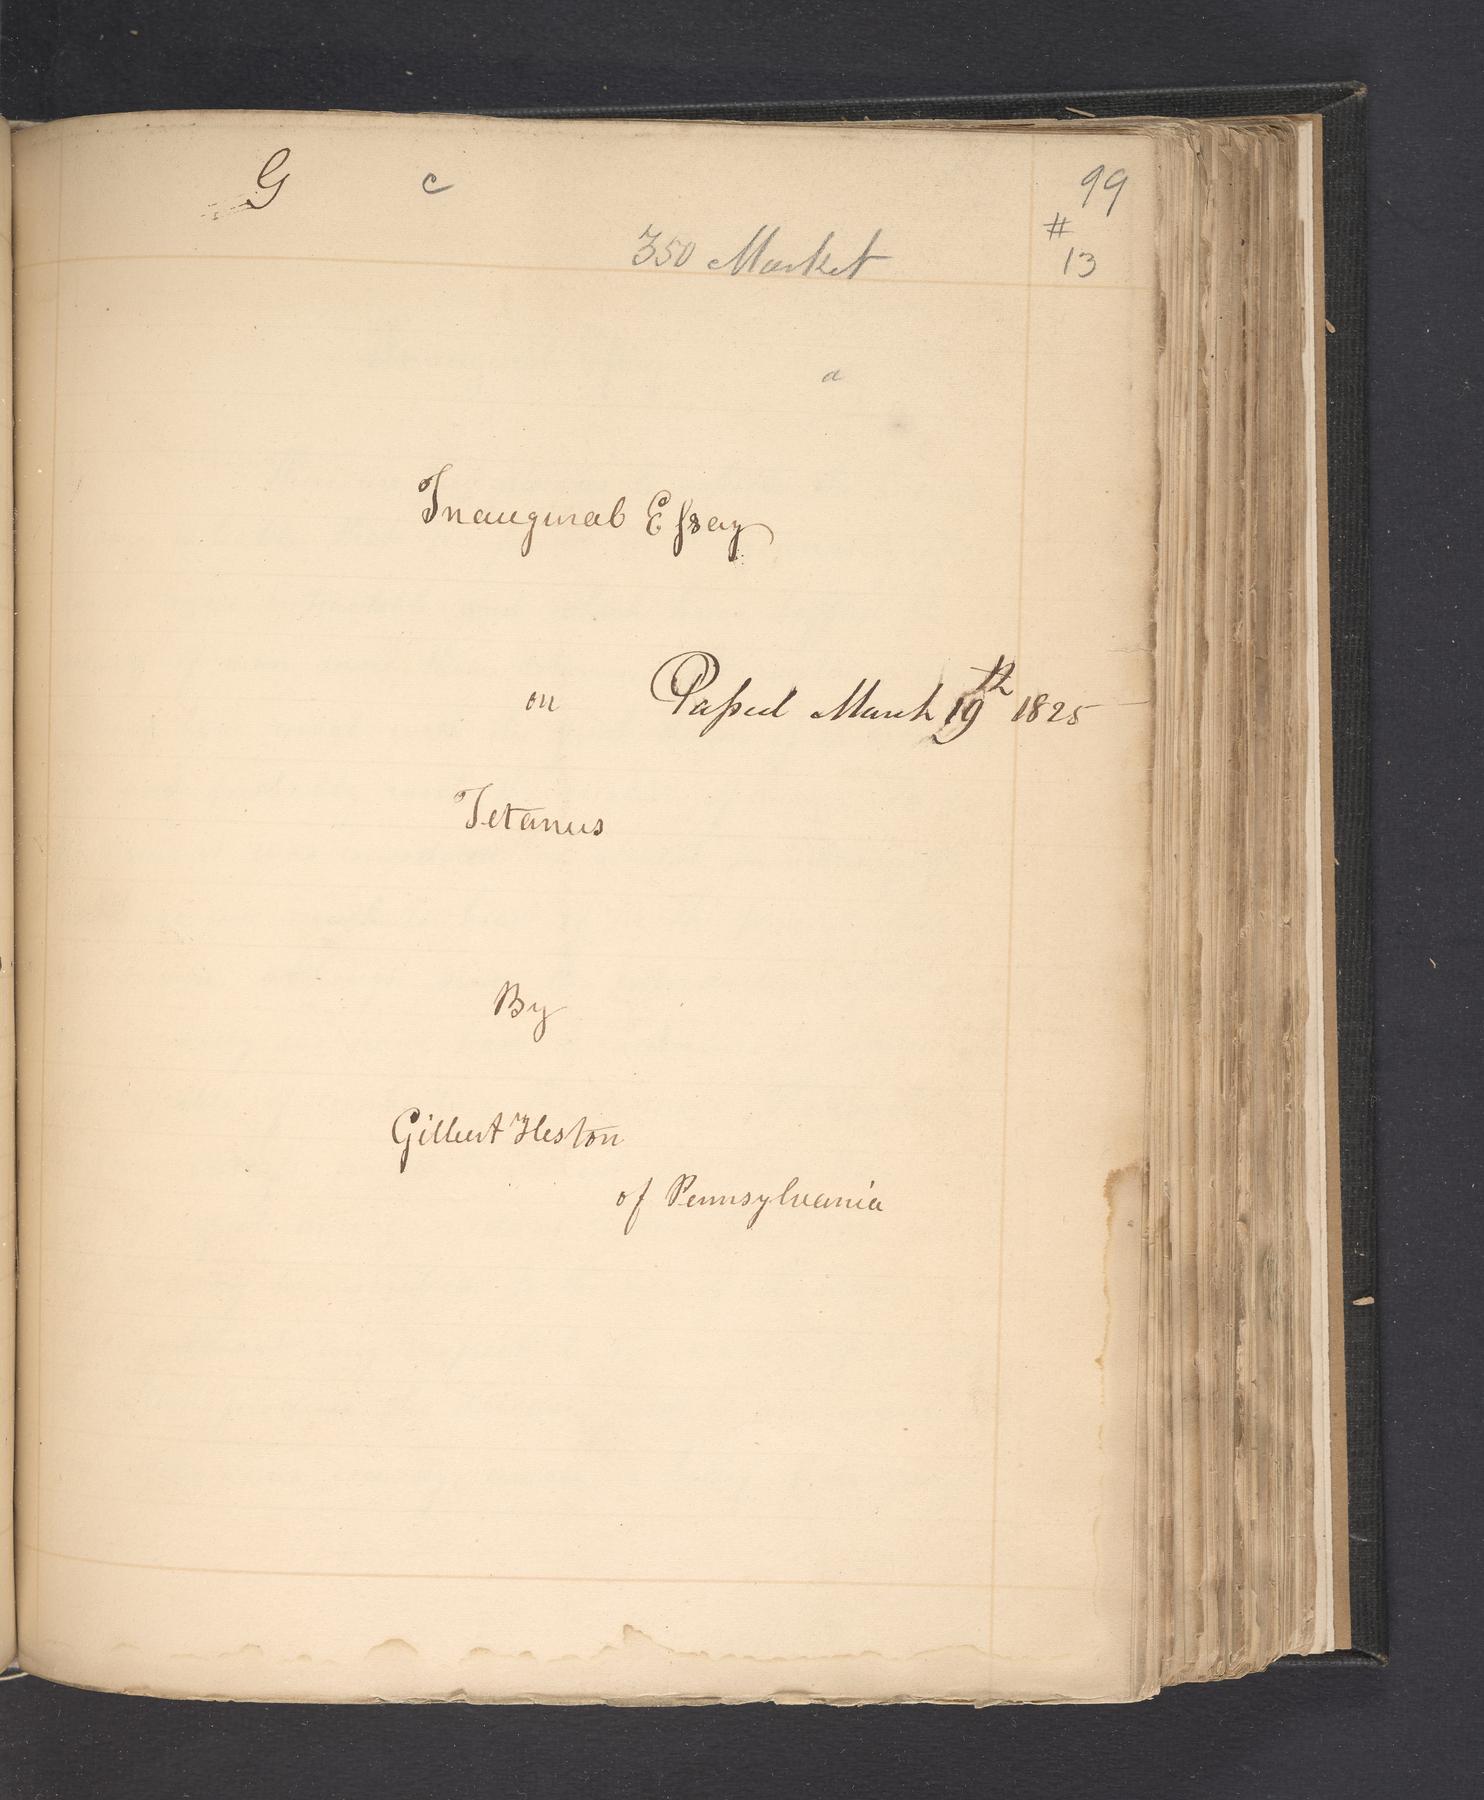 G c 99
#
350 Market 13
a
Inaugural Essay
on Passed March 19th 1825
Tetanus
By
Gilbert Heston
of Pennsylvania